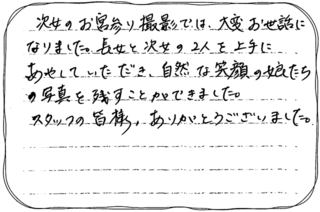 次女のお宮参り撮影では、大変お世話に
なりました。長女と次女の2人を上手に
あやしていただき、自然な笑顔の娘たち
の写真を残すことができました。
スタッフの皆様、ありがとうございました。